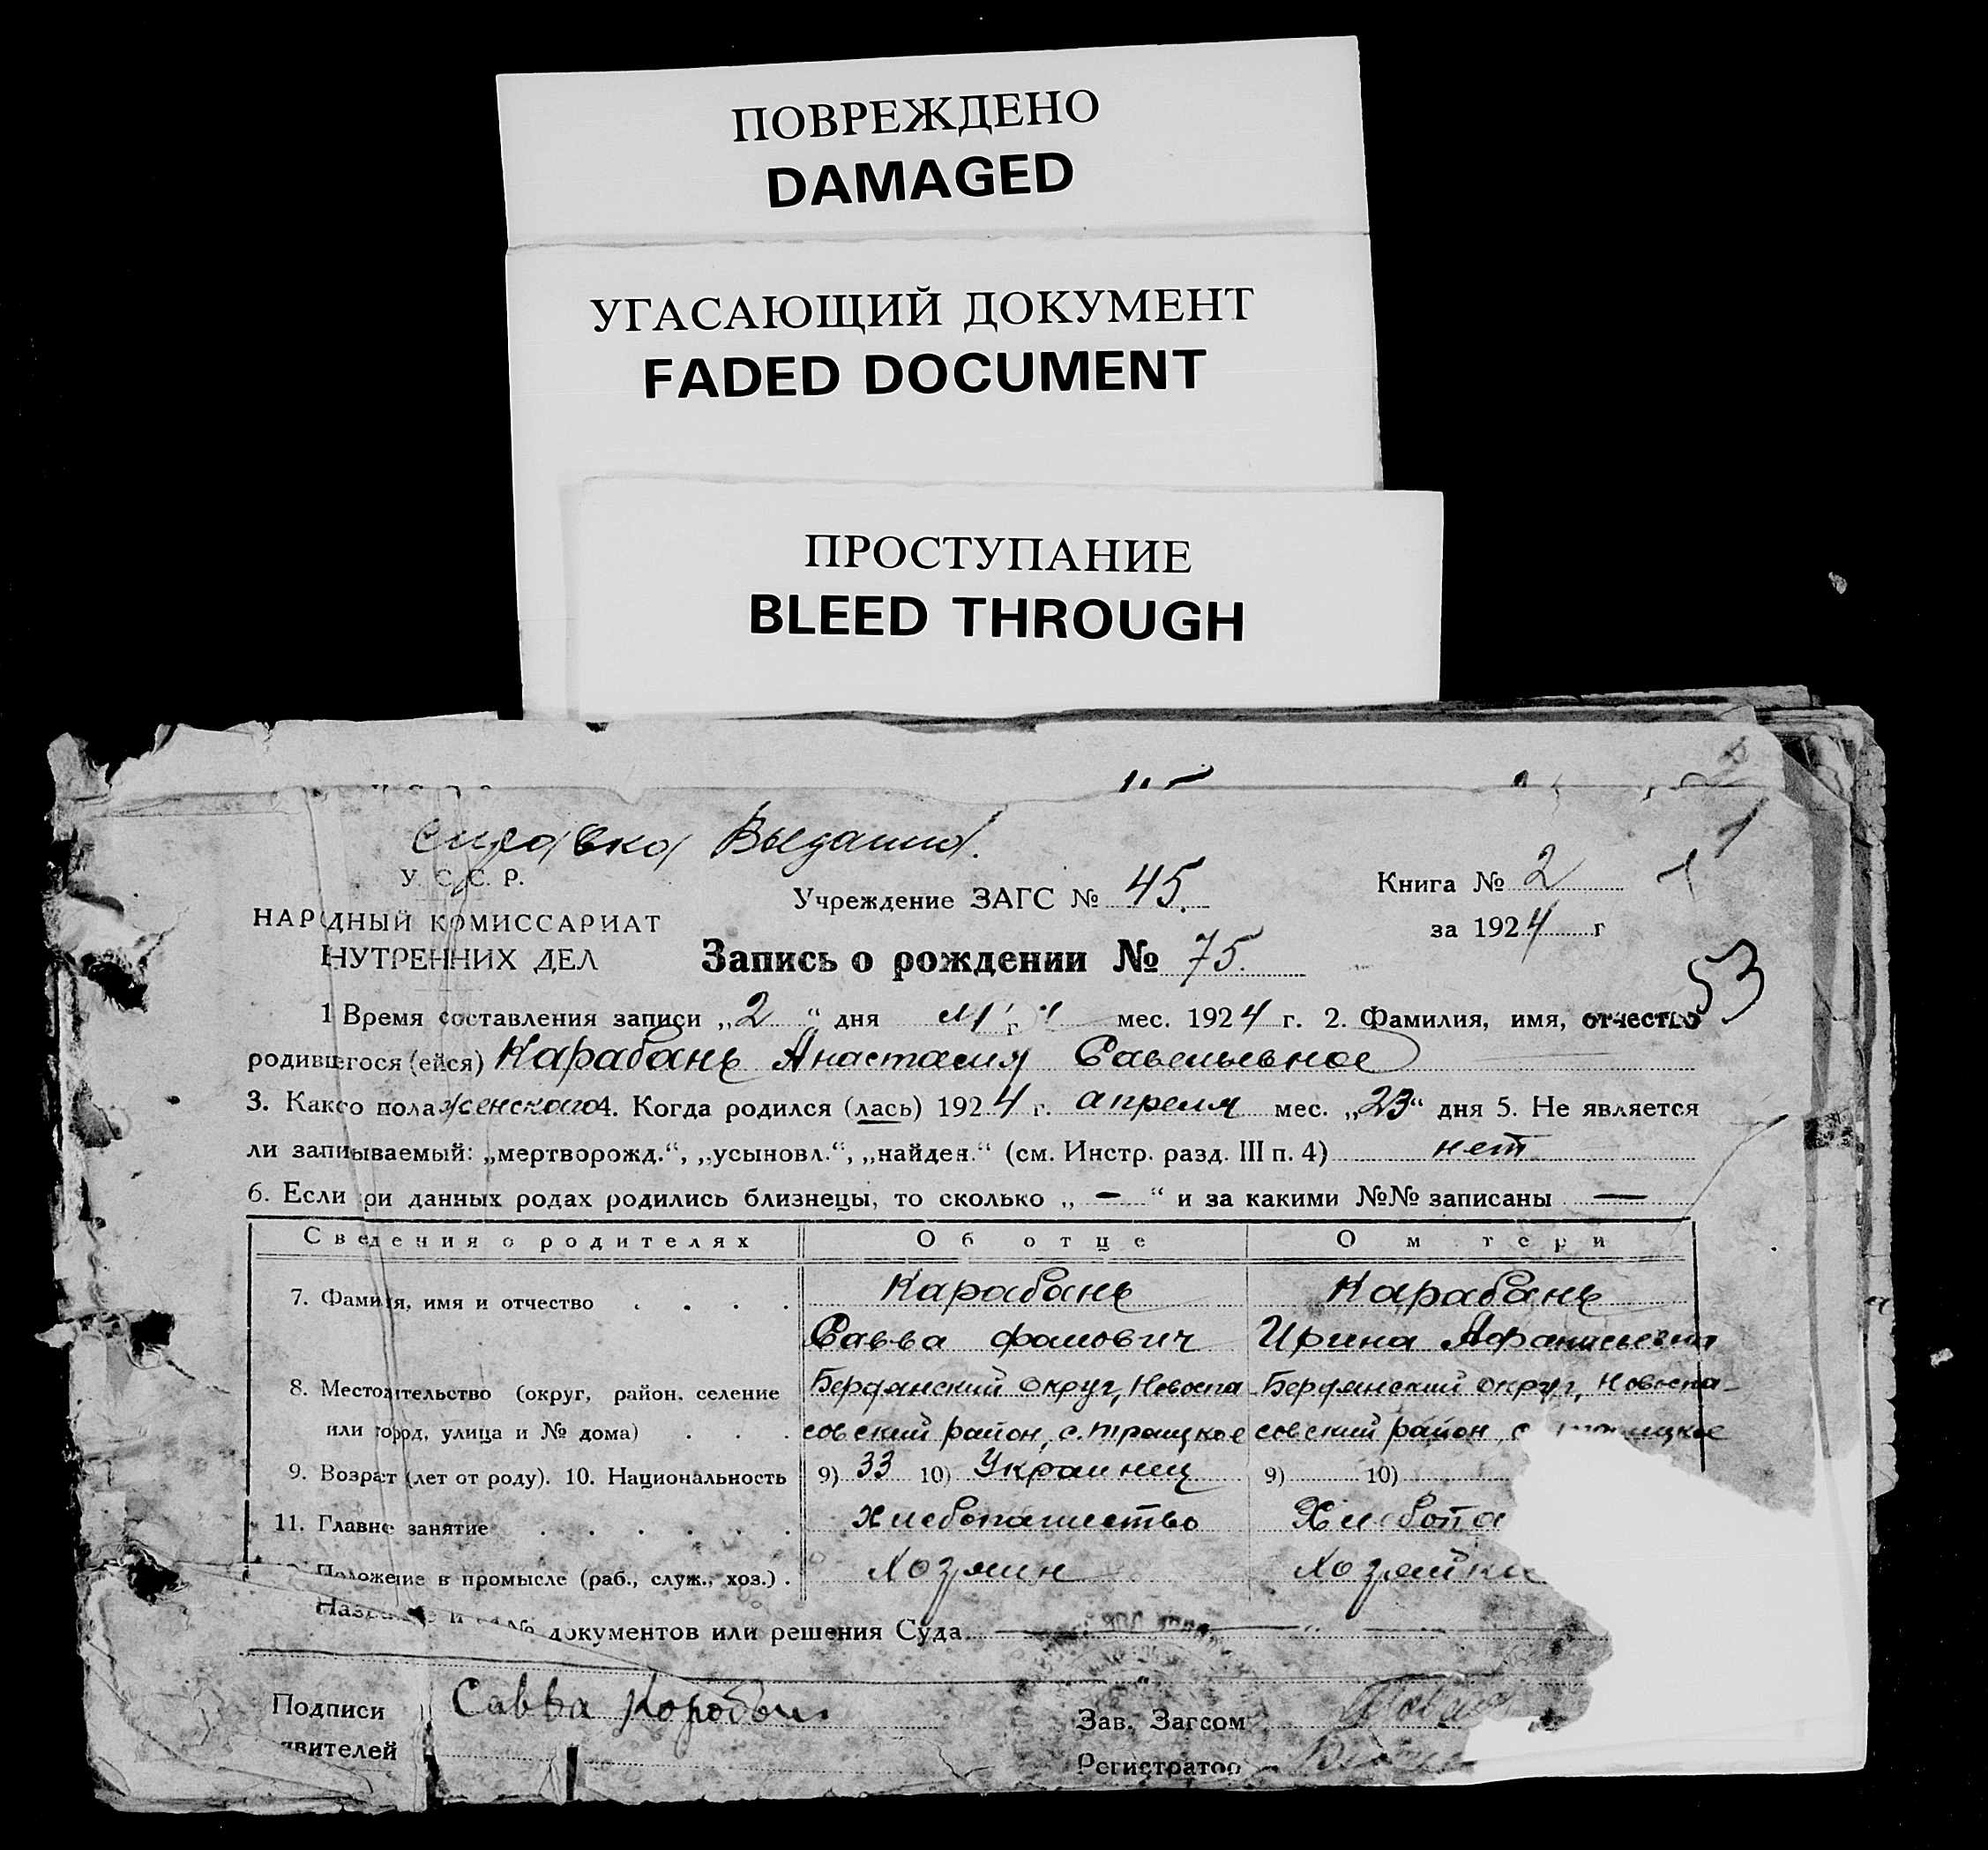 ПОВРЕЖДЕНО
DAMAGED
УГАСАЮЩИЙ ДОКУМЕНТ
FADED DOCUMENT
ПРОСТУПАНИЕ
BLEED THROUGH
Справка Выдана.
У. С. С. Р.
НАРОДНЫЙ КОМИССАРИАТ
ВНУТРЕННИХ ДЕЛ
Учреждение ЗАГС № 45.
Книга № 2
за 1924 г
Запись о рождении № 75.
53
1 Время составления записи „2“ дня мес. 1924 г. 2. Фамилия, имя, отчество
родившегося (ейся) Карабань Анастасия Савельевна
3. Какого пола женского 4. Когда родился (лась) 1924 г. апреля мес. „23“ дня 5. Не является
ли записываемый: „мертворожд.“, „усыновл.“, „найден.“ (см. Инстр. разд. III п. 4) нет
6. Если при данных родах родились близнецы, то сколько „ — “ и за какими №№ записаны —
Сведения о родителях Об отце О матери
7. Фамилия, имя и отчество . . . . Карабань Карабань
Савва Фомович Ирина Афанасьевна
8. Местожительство (округ, район, селение Бердянский округ, Новоспа- Бердянский округ, Новоспа-
или город, улица и № дома) . . . совский район, с. Троицкое совский район с Троицкое
9. Возраст (лет от роду). 10. Национальность 9) 33 10) Украинец 9) 10)
11. Главное занятие . . . . . . Хлебопашество Хлебопа
Положение в промысле (раб., служ., хоз.) . Хозяин Хозяйка
Название и № документов или решения Суда —
Подписи Савва Коробань Зав. Загсом
явителей Регистратор